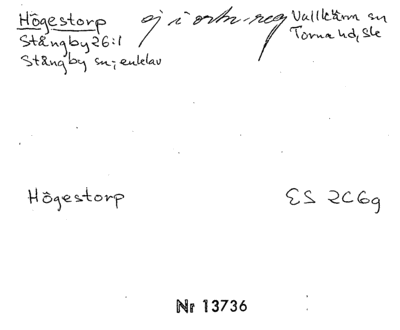 Högestorp ej i ortn.-reg Vallkärra sn
Stångby 26:1 Torna hd, Skå
Stångby sn; enklav
Högestorp ES 2C6g
Nr 13736